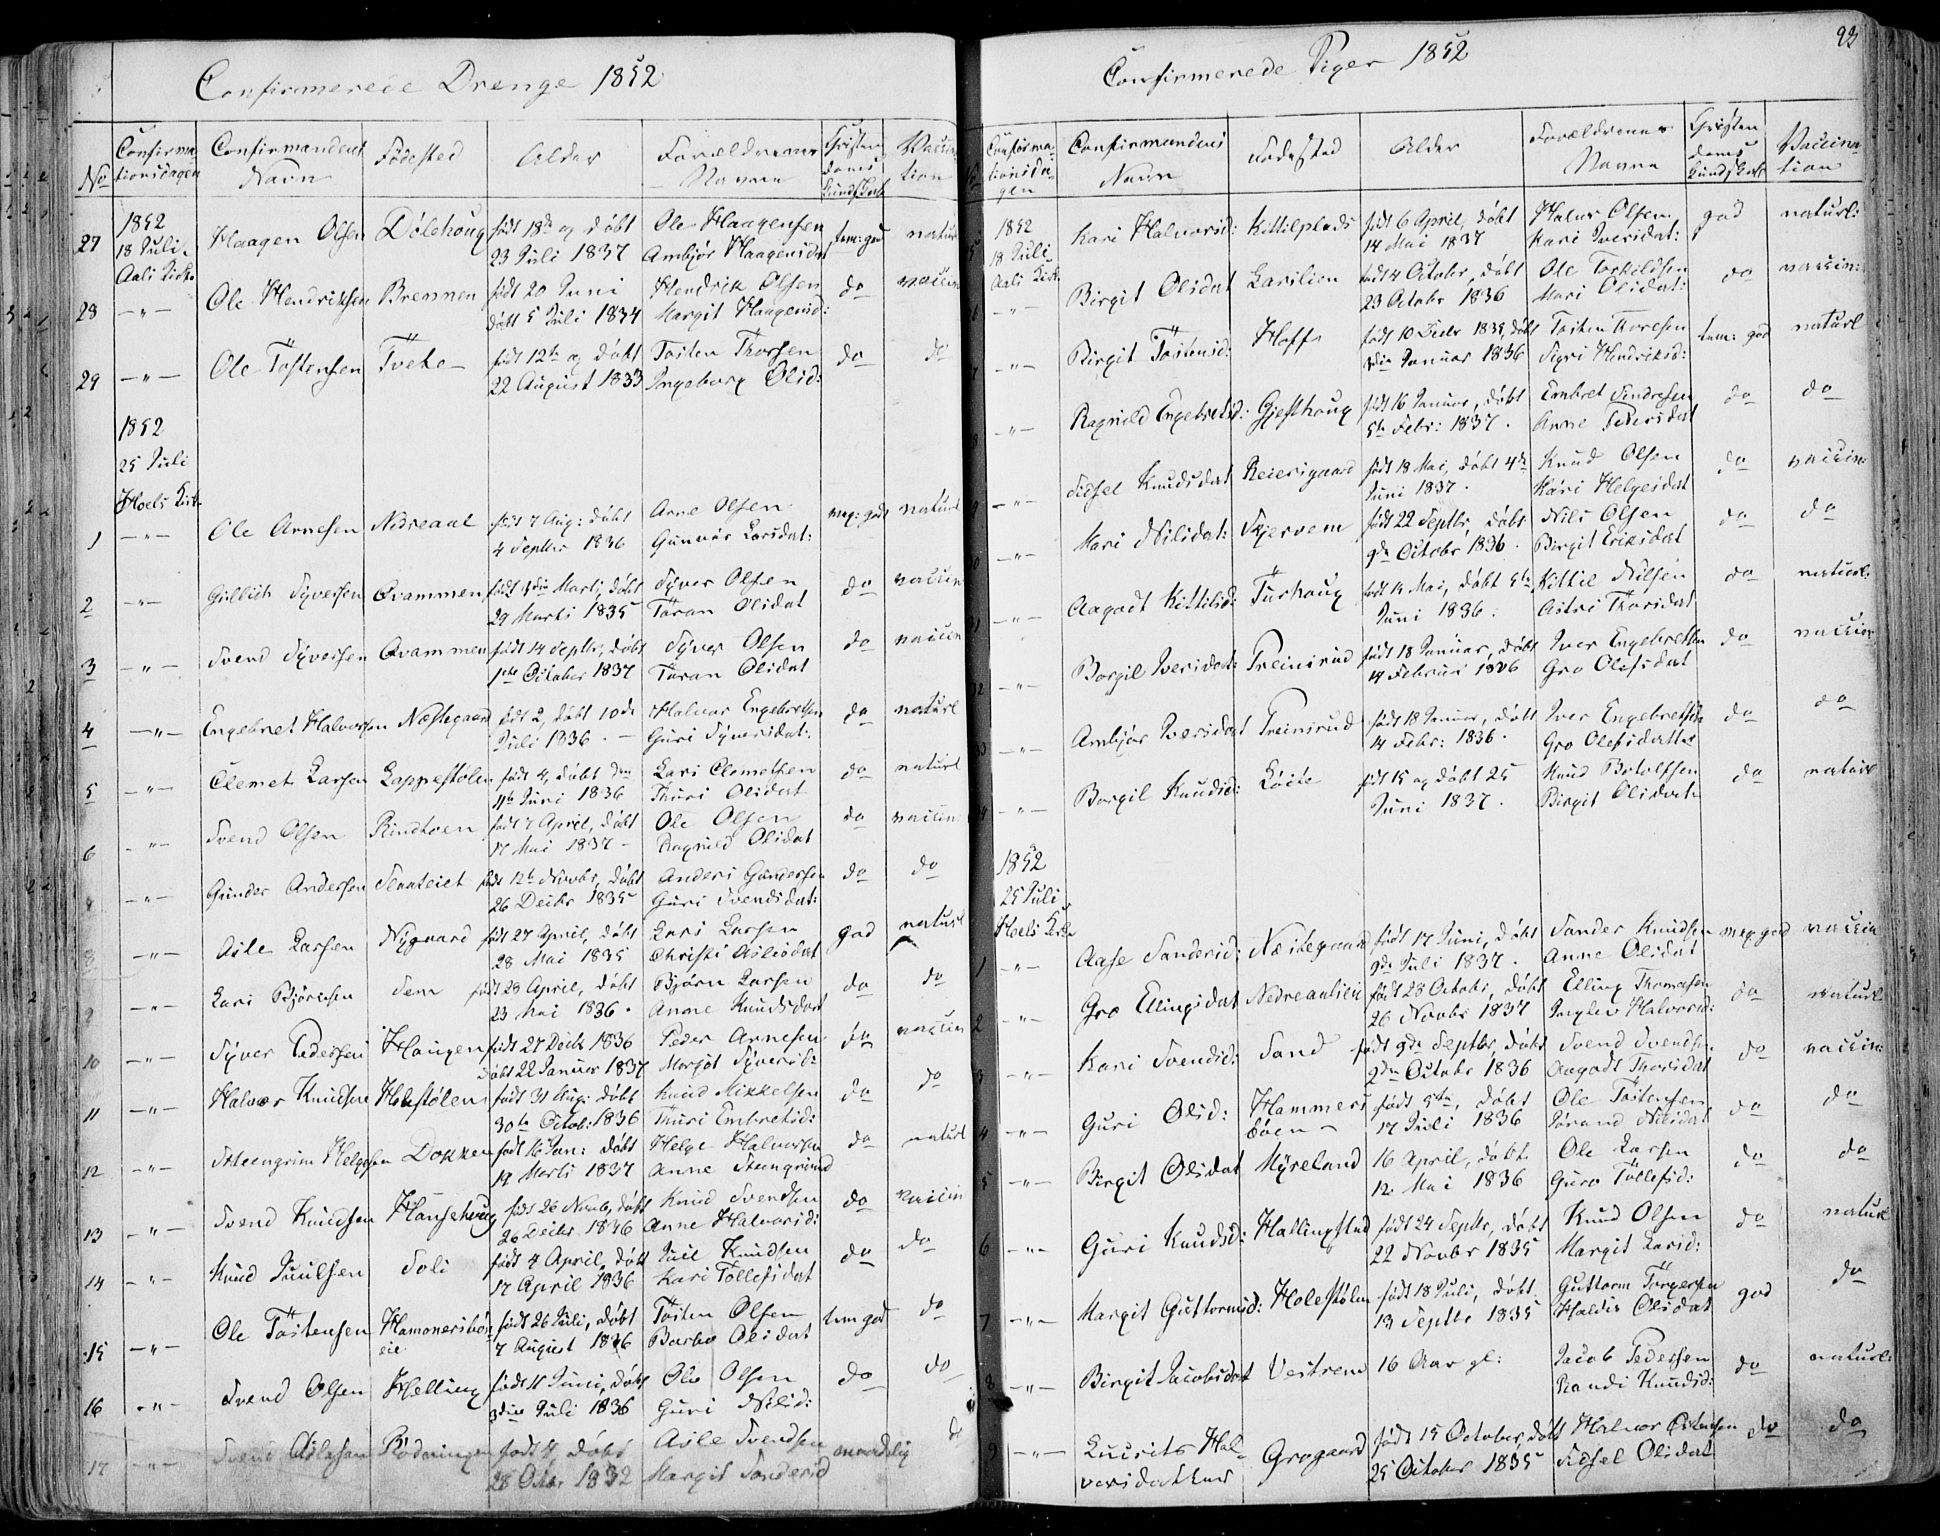 Confirmerede Drenge 1852
No
Confirma-
tionsdagen
Confirmandens
Navn
Fødested
Alder
Forældrenes
Navne
Christen-
doms
Kundskab
Vaccina-
tion
27
1852
18 Juli
Aals Kirke
Haagen Olsen
Dølehoug
født 18de og døbt
23 Juli 1837
Ole Haagensen
Ambjør Haagensdat
tem: god
naturl
28
—"—
Ole Hendriksen
Brennen
født 20 Juni
døbt 5 Juli 1834
Hendrik Olsen
Margit Haagensd:
do
vaccin
29
—"—
Ole Tostensen
Tveto
født 12te og døbt
22 August 1833
Tosten Thorsen
Ingeborg Olsd:
do
do
1852
25 Juli
Hoels Kirk.
1
—"—
Ole Arnesen
Nedreaal
født 7 Aug: døbt
4 Septbr 1836
Arne Olsen
Gunvor Larsdat:
meg: god
naturl
2
—"—
Syversen
Qvammen
døbt
29 Marts 1835
Syver Olsen
Turan Olsdat
do
vaccin
3
—"—
Svend Syversen
Qvammen
født 14 Septbr, døbt
1ste October 1837
Syver Olsen
Turan Olsdat
do
vaccin
4
—"—
Engebret Halvorsen
Næstegaard
født 2, døbt 10de
Juli 1836. —
Halvor Engebretsen
Guri Syversdat:
do
naturl
5
—"—
Clemet Larsen
Lappestolen
født 4, døbt den
Juni 1836
Lars Clemetsen
Thuri Olsdat
do
naturl
6
—"—
Svend Olsen
Rindtoen
født 7 April, døbt
17 Mai 1837 —
Ole Olsen
Ragnild Olsdat
do
vaccin
—"—
Gunder Andersen
født 12te Novbr, døbt
26 Decbr 1835
Anders Gundersen
Guri Svendsdat:
do
do
8
—"—
Asle Larsen
Nygaard
født 27 April, døbt
28 Mai 1835
Lars Larsen
Christi Aslesdat
god
naturl
9
—"—
Lars Bjørnsen
Sem
født 28 April, døbt
23 Mai 1836.
Bjørn Larsen
Anne Knudsdat
do
do
10
—"—
Syver Pedersen
Haugen
født 27 Decbr 1836
døbt 22 Januar 1837
Peder Arnesen
Margit Syversd:
do
vaccin
11
—"—
Halvor Knudsen
Holestølen
født 31 Aug: døbt
30te Octob: 1836
Knud Mikkelsen
Thuri Embretsd:
do
do
12
—"—
Steengrim Helgesen
Dokken
født 16 Jan: døbt
19 Marts 1837
Helge Halvorsen
Anne Steengrimd
do
naturl
13
—"—
Svend Knudsen
født 26 Novbr, døbt
26 Decbr 1836
Knud Svendsen
Anne Halvorsd:
do
vaccin
14
—"—
Knud Juulsen
Soli
født 4 April, døbt
17 April 1836
Juul Knudsen
Kari Tollefsdat
do
do
15
—"—
Ole Tostensen
Hammersbøe
eie
født 26 Juli, døbt
7 August 1836
Tosten Olsen
Barbo Olsdat
tem god
do
16
—"—
Svend Olsen
Helling
født 11 Juni, døbt
3die Juli 1836
Ole Olsen
Guri Nilsd:
do
do
17
—"—
Svend Aslesen
Rodningen
født 4 døbt
28 Octbr 1832
Asle Svendsen
Margit Sandersd
maadelig
do
Confirmerede Piger 1852
93
No
Confirma-
tionsda-
gen
Confirmandens
Navn
Fødested
Alder
Forældrenes
Navne
Christen-
doms
Kundskab
Vaccina-
tion
5
1852
18 Juli
Aals Kirk
Kari Halvorsd:
Kittilplads
født 6 April, døbt
14 Mai 1837
Halvor Olsen
Kari Iversdat:
god
naturl:
6
—"—
Birgit Olsdat
Larslien
født 4 October, døbt
23 Octobr 1836
Ole Torkildsen
Mari Olsdat:
do
vaccin:
7
—"—
Birgit Tostensd:
Hoff
født 10 Decbr 1835, døbt
Januar 1836
Tosten Thoresen
Sigri Hendriksd:
tem: god
naturl
8
—"—
Ragnild Engebretsd:
Gjesthoug
født 16 Januar, døbt
5te Febr: 1837.
Embret Sendresen
Anne Pedersdat
do
do
9
—"—
Sidsel Knudsdat
Reiersgaard
født 18 Mai, døbt 4de
Juni 1837.
Knud Olsen
Kari Helgesdat
do
vaccin
10
—"—
Mari Nilsdat:
Skjervem
født 22 Septbr, døbt
9de Octobr 1836.
Nils Olsen
Birgit Eriksdat
do
do
11
—"—
Aagodt Kittilsd:
Turhoug
født 14 Mai, døbt 5te
Juni 1836.
Kittil Nilsen
Astri Thorsdat
do
naturl:
12
—"—
Borgil Iversdat:
Treinsrud
født 18 Januar, døbt
14 Februar 1836
Iver Engebretsen
Gro Olefsdat
do
vaccin
13
—"—
Ambjør Iversdat
Treinsrud
født 18 Januar, døbt
14 Febr: 1836.
Iver Engebretsen
Gro Olefsdatter
do
do
14
—"—
Borgil Knudsd:
Løite
født 15 og døbt 25
Juni 1837.
Knud Botolfsen
Birgit Olsdat
do
naturl
1852
25 Juli
Hoels Kirke
1
—"—
Aase Sandersd:
Næstegaard
født 17 Juni, døbt
9de Juli 1837.
Sander Knudsen
Anne Olsdat
meg god
vaccin
2
—"—
Gro Ellingsdat
Nedreaalslien
født 28 Octobr, døbt
26 Novbr 1837
Elling Thomesen
Inglev Halvorsd:
do
naturl
3
—"—
Kari Svendsd:
Sand
født 9de Septbr, døbt
2den Octobr 1836
Svend Svendsen
Aagodt Thorsdat
do
vaccin:
4
—"—
Guri Olsd:
Hammers
bøen —
født 5te, døbt
17 Juli 1836
Ole Tostensen
Jørand Nilsdat
do
do
5
—"—
Birgit Olsdat
Myreland
16 April, døbt
12 Mai 1836
Ole Larsen
Guro Tollefsd:
do
do
6
—"—
Guri Knudsd:
Hallingstad
født 24 Septbr, døbt
22 Novbr 1835
Knud Olsen
Margit Larsd:
do
naturl
7
—"—
Margit Guttormsd:
Holestølen
født 18 Juli, døbt
13 Septbr 1835
Guttorm Torgersen
Haldis Olsdat
god
do
8
—"—
Birgit Jacobsdat
Vestrem
16 Aar gl:
Jacob Pedersen
Randi Knudsd:
do
naturl:
9
—"—
Lucrits Hal-
vorsdatter
Grøgaard
født 15 October, døbt
25 October 1835
Halvor Østensen
Sidsel Olsdat
do
do